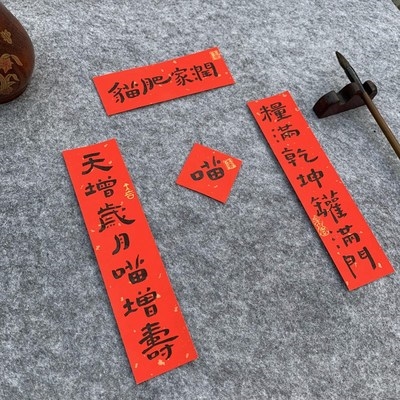 貓肥家潤
糧滿乾坤罐滿門
喵
天增歲月喵增壽